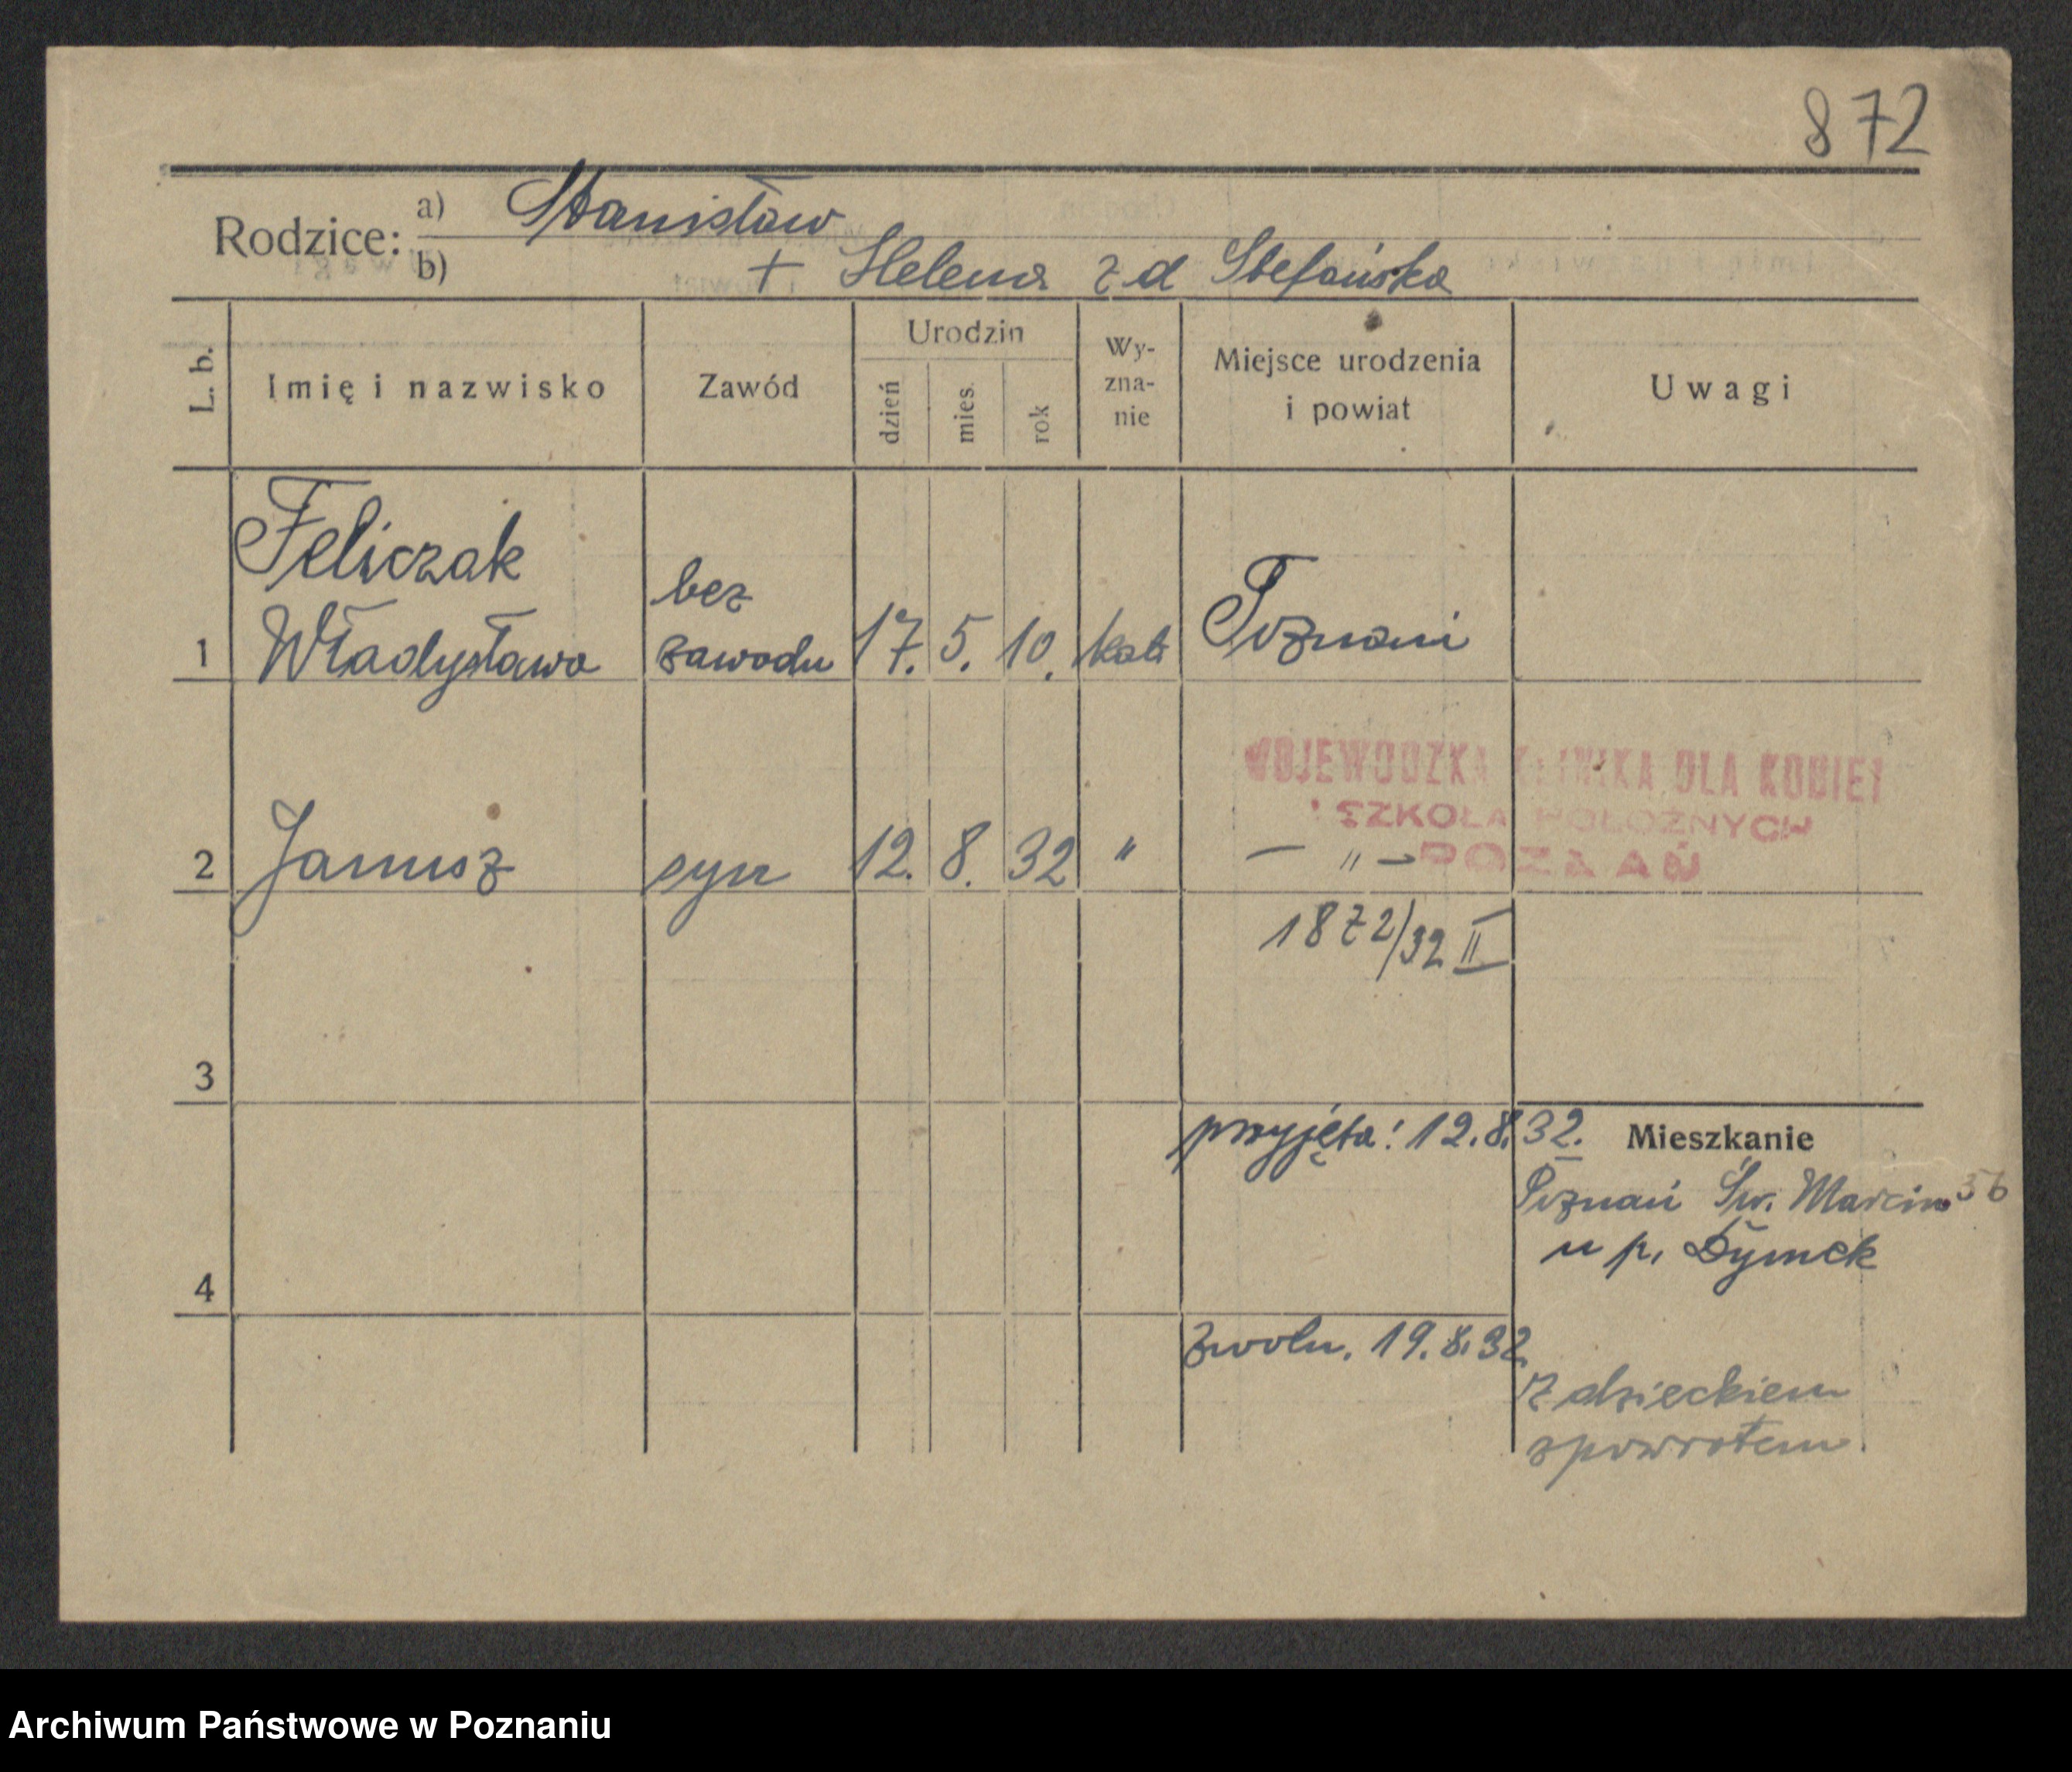 872
Rodzice: a) Stanisław
b) + Helena z d Stefańska
L. b.
Imię i nazwisko
Zawód
Urodzin
dzień
mies.
rok
Wy-
zna-
nie
Miejsce urodzenia
i powiat
Uwagi
Feliczak
bez
1 Władysława zawodu 17. 5. 10. kat. Poznań
WOJEWÓDZKA KLINIKA DLA KOBIET
SZKOŁA POŁOŻNYCH
POZNAŃ
2 Janusz syn 12. 8. 32 " — " —
1872/32 II
3
przyjęta: 12.8.32.
Mieszkanie
Poznań Św. Marcin 56
u p. Dymek
4
zwoln. 19.8.32.
z dzieckiem
zpowrotem.
Archiwum Państwowe w Poznaniu